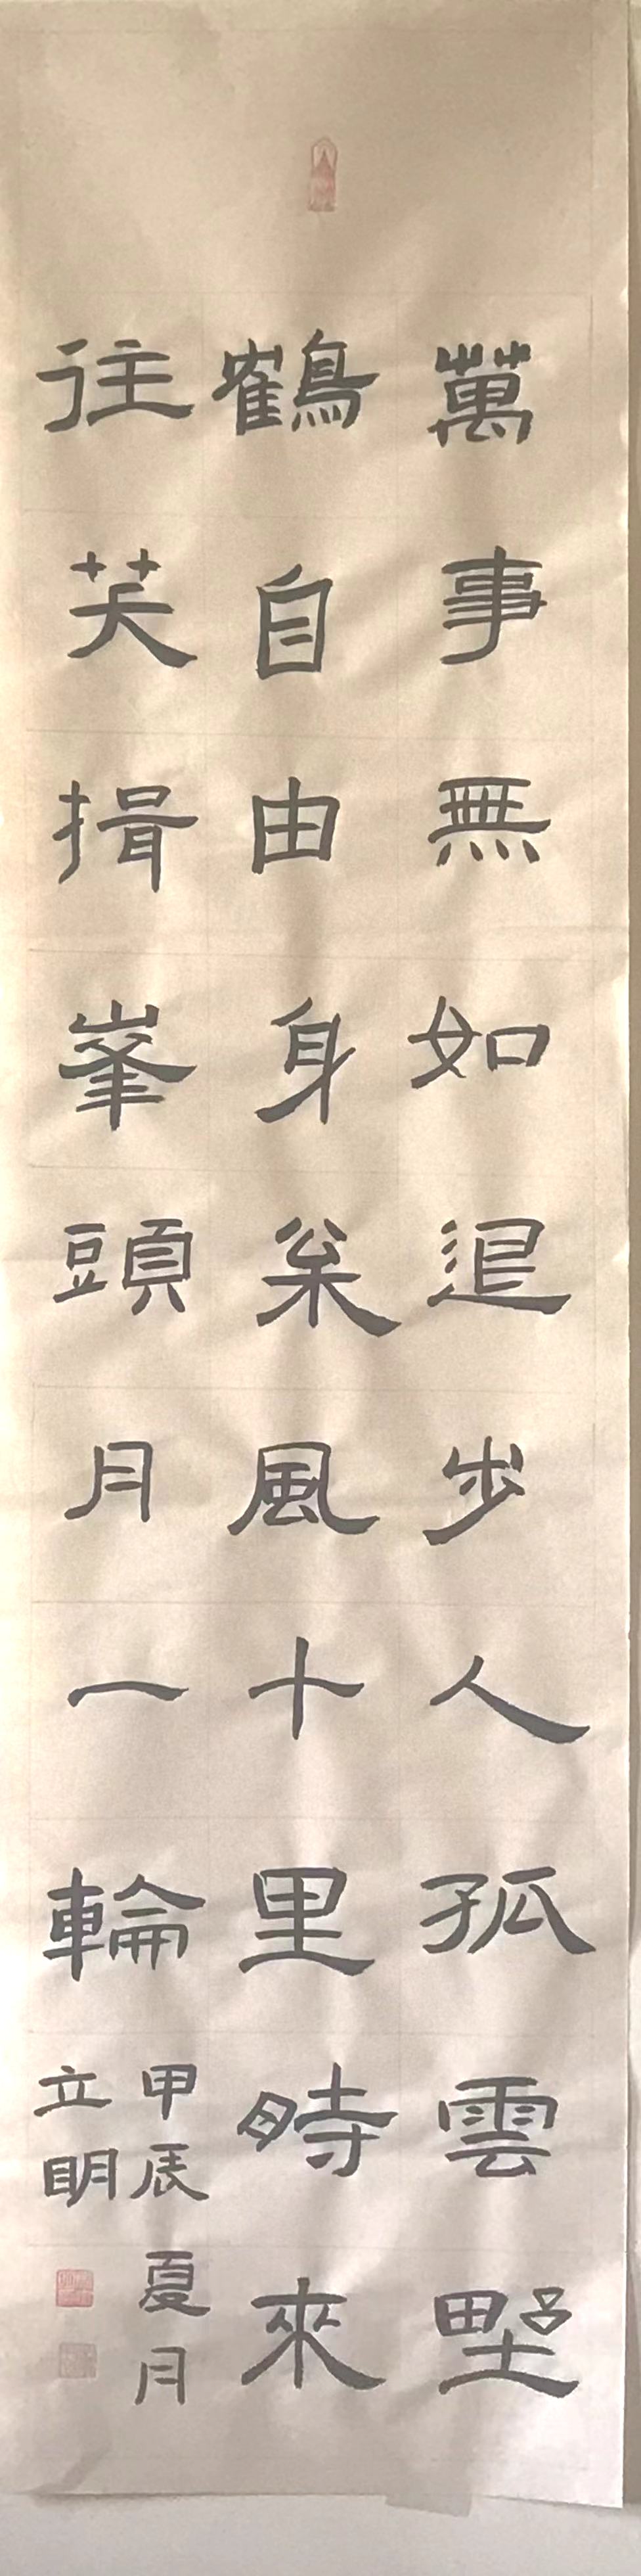 萬事無如退步人孤雲野
鶴自由身枀風十里時來
往笑揖峯頭月一輪
甲辰夏月
立明